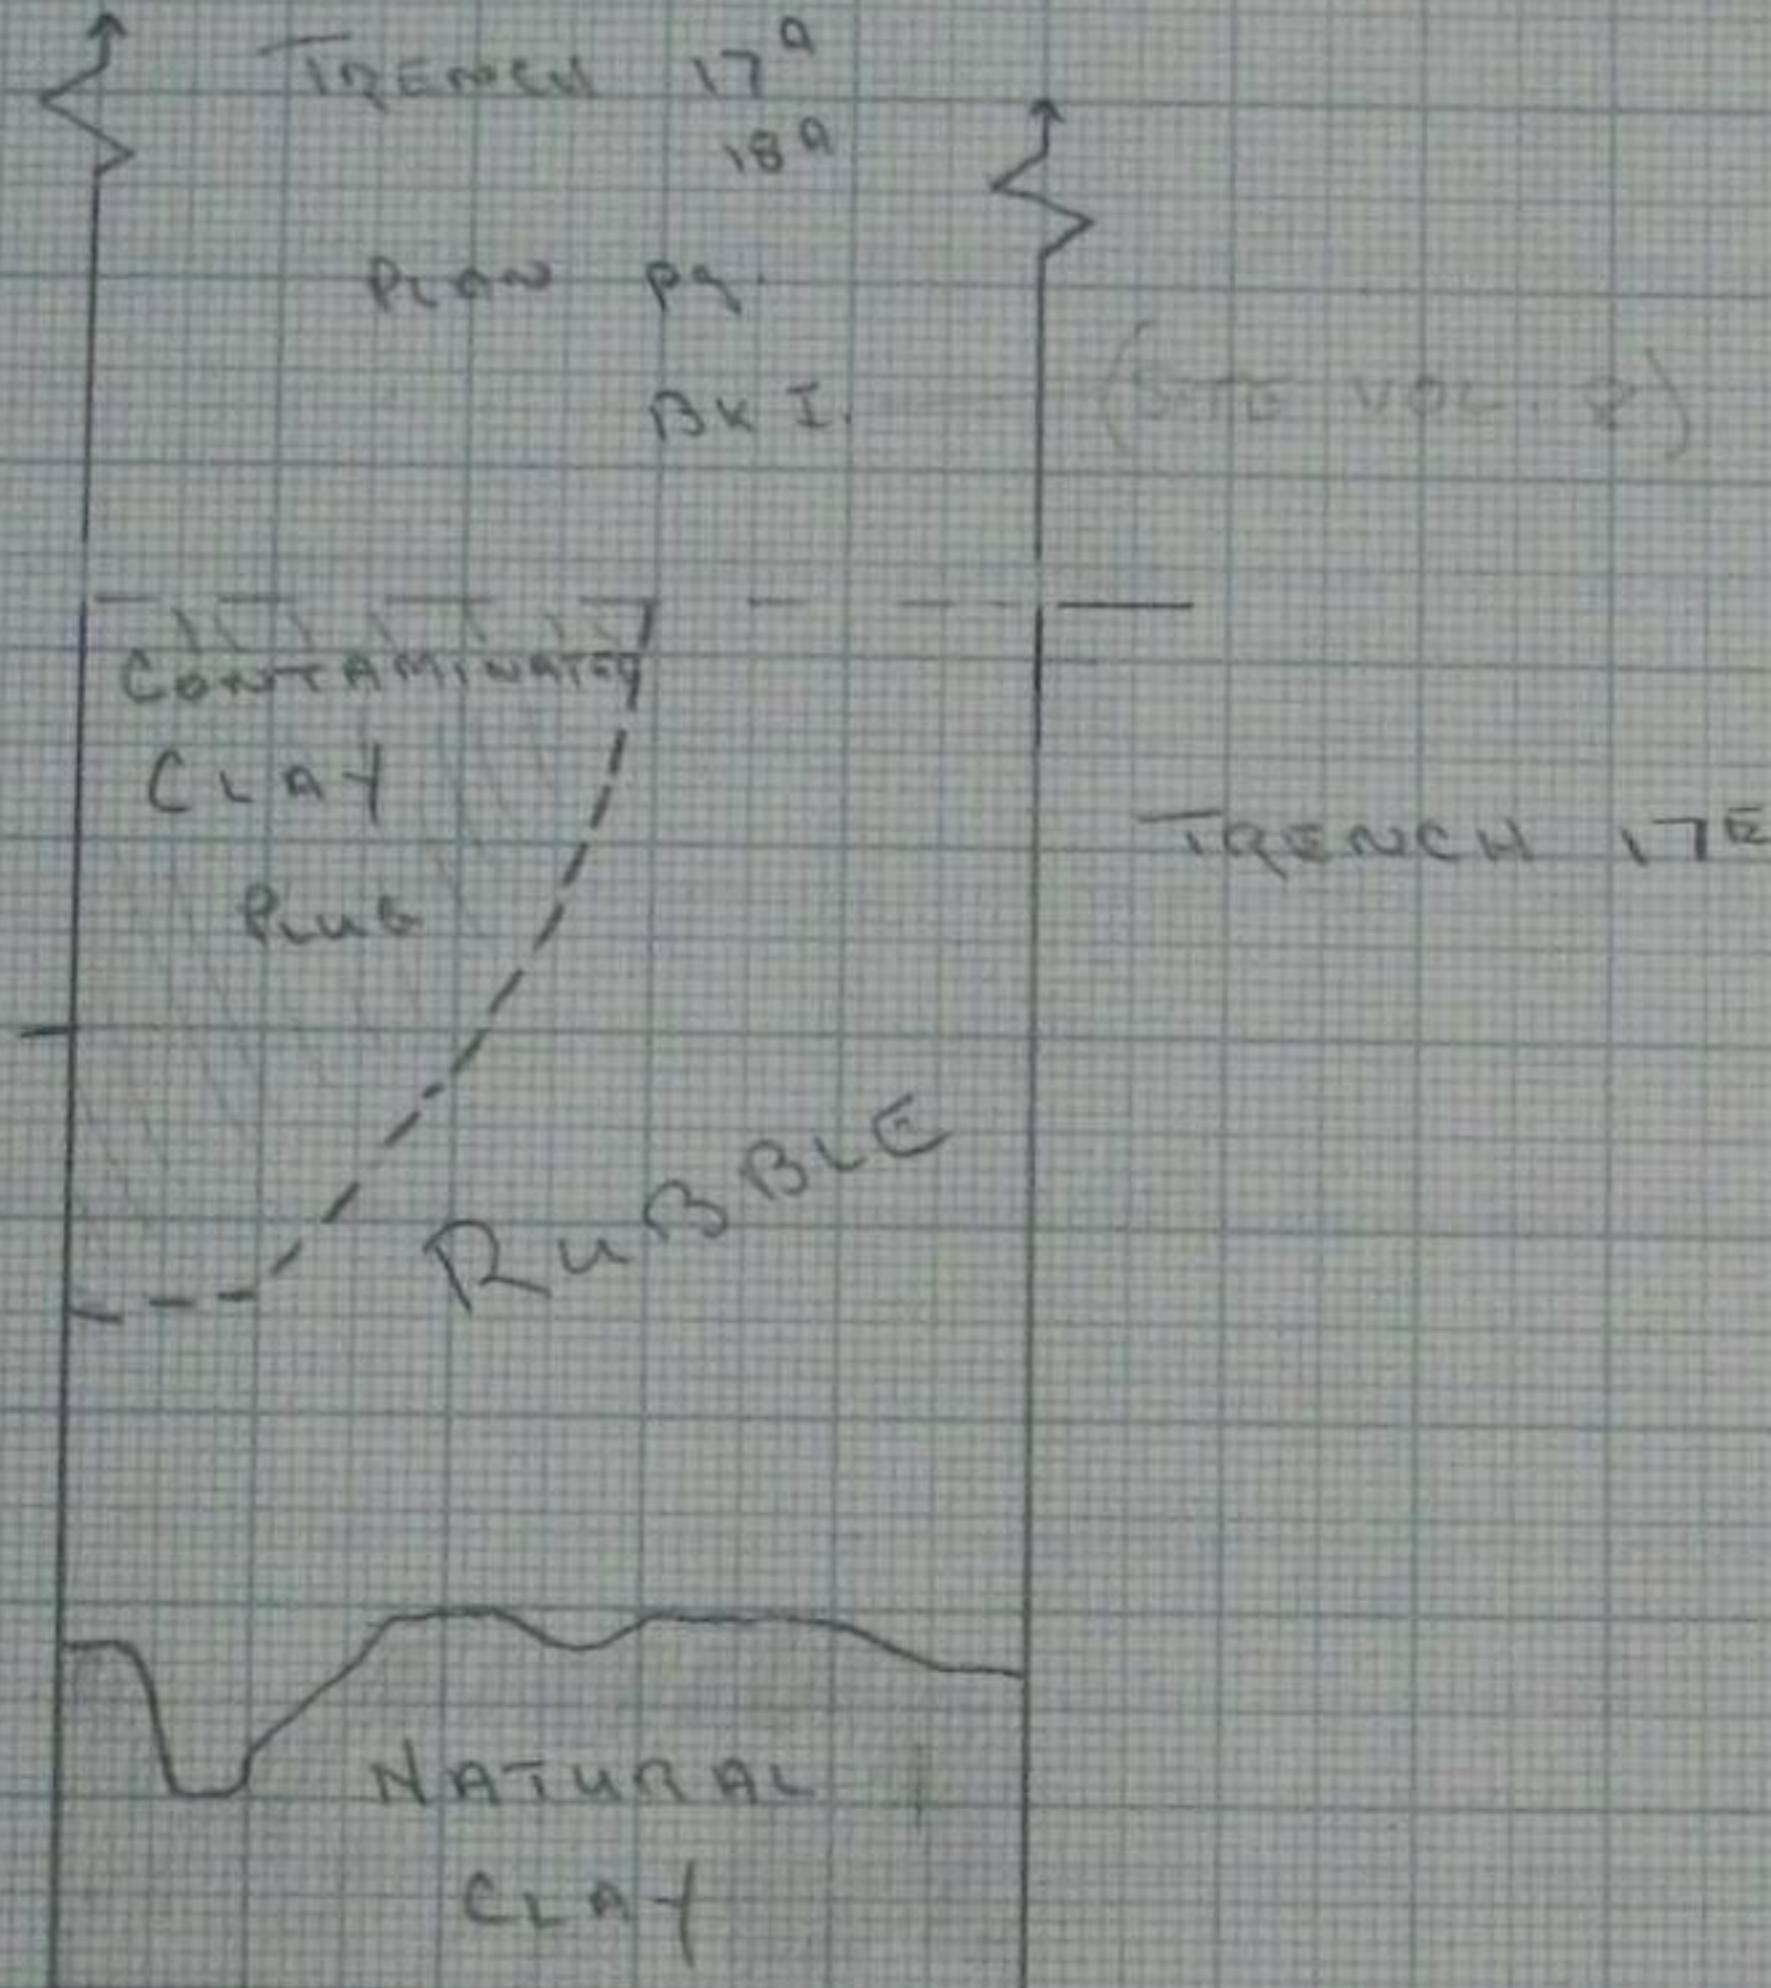 TRENCH 17A
18A
PLAN pg.
BK I.
(SITE VOL. 2)
CONTAMINATED
CLAY
PLUG
TRENCH 17E
RUBBLE
NATURAL
CLAY